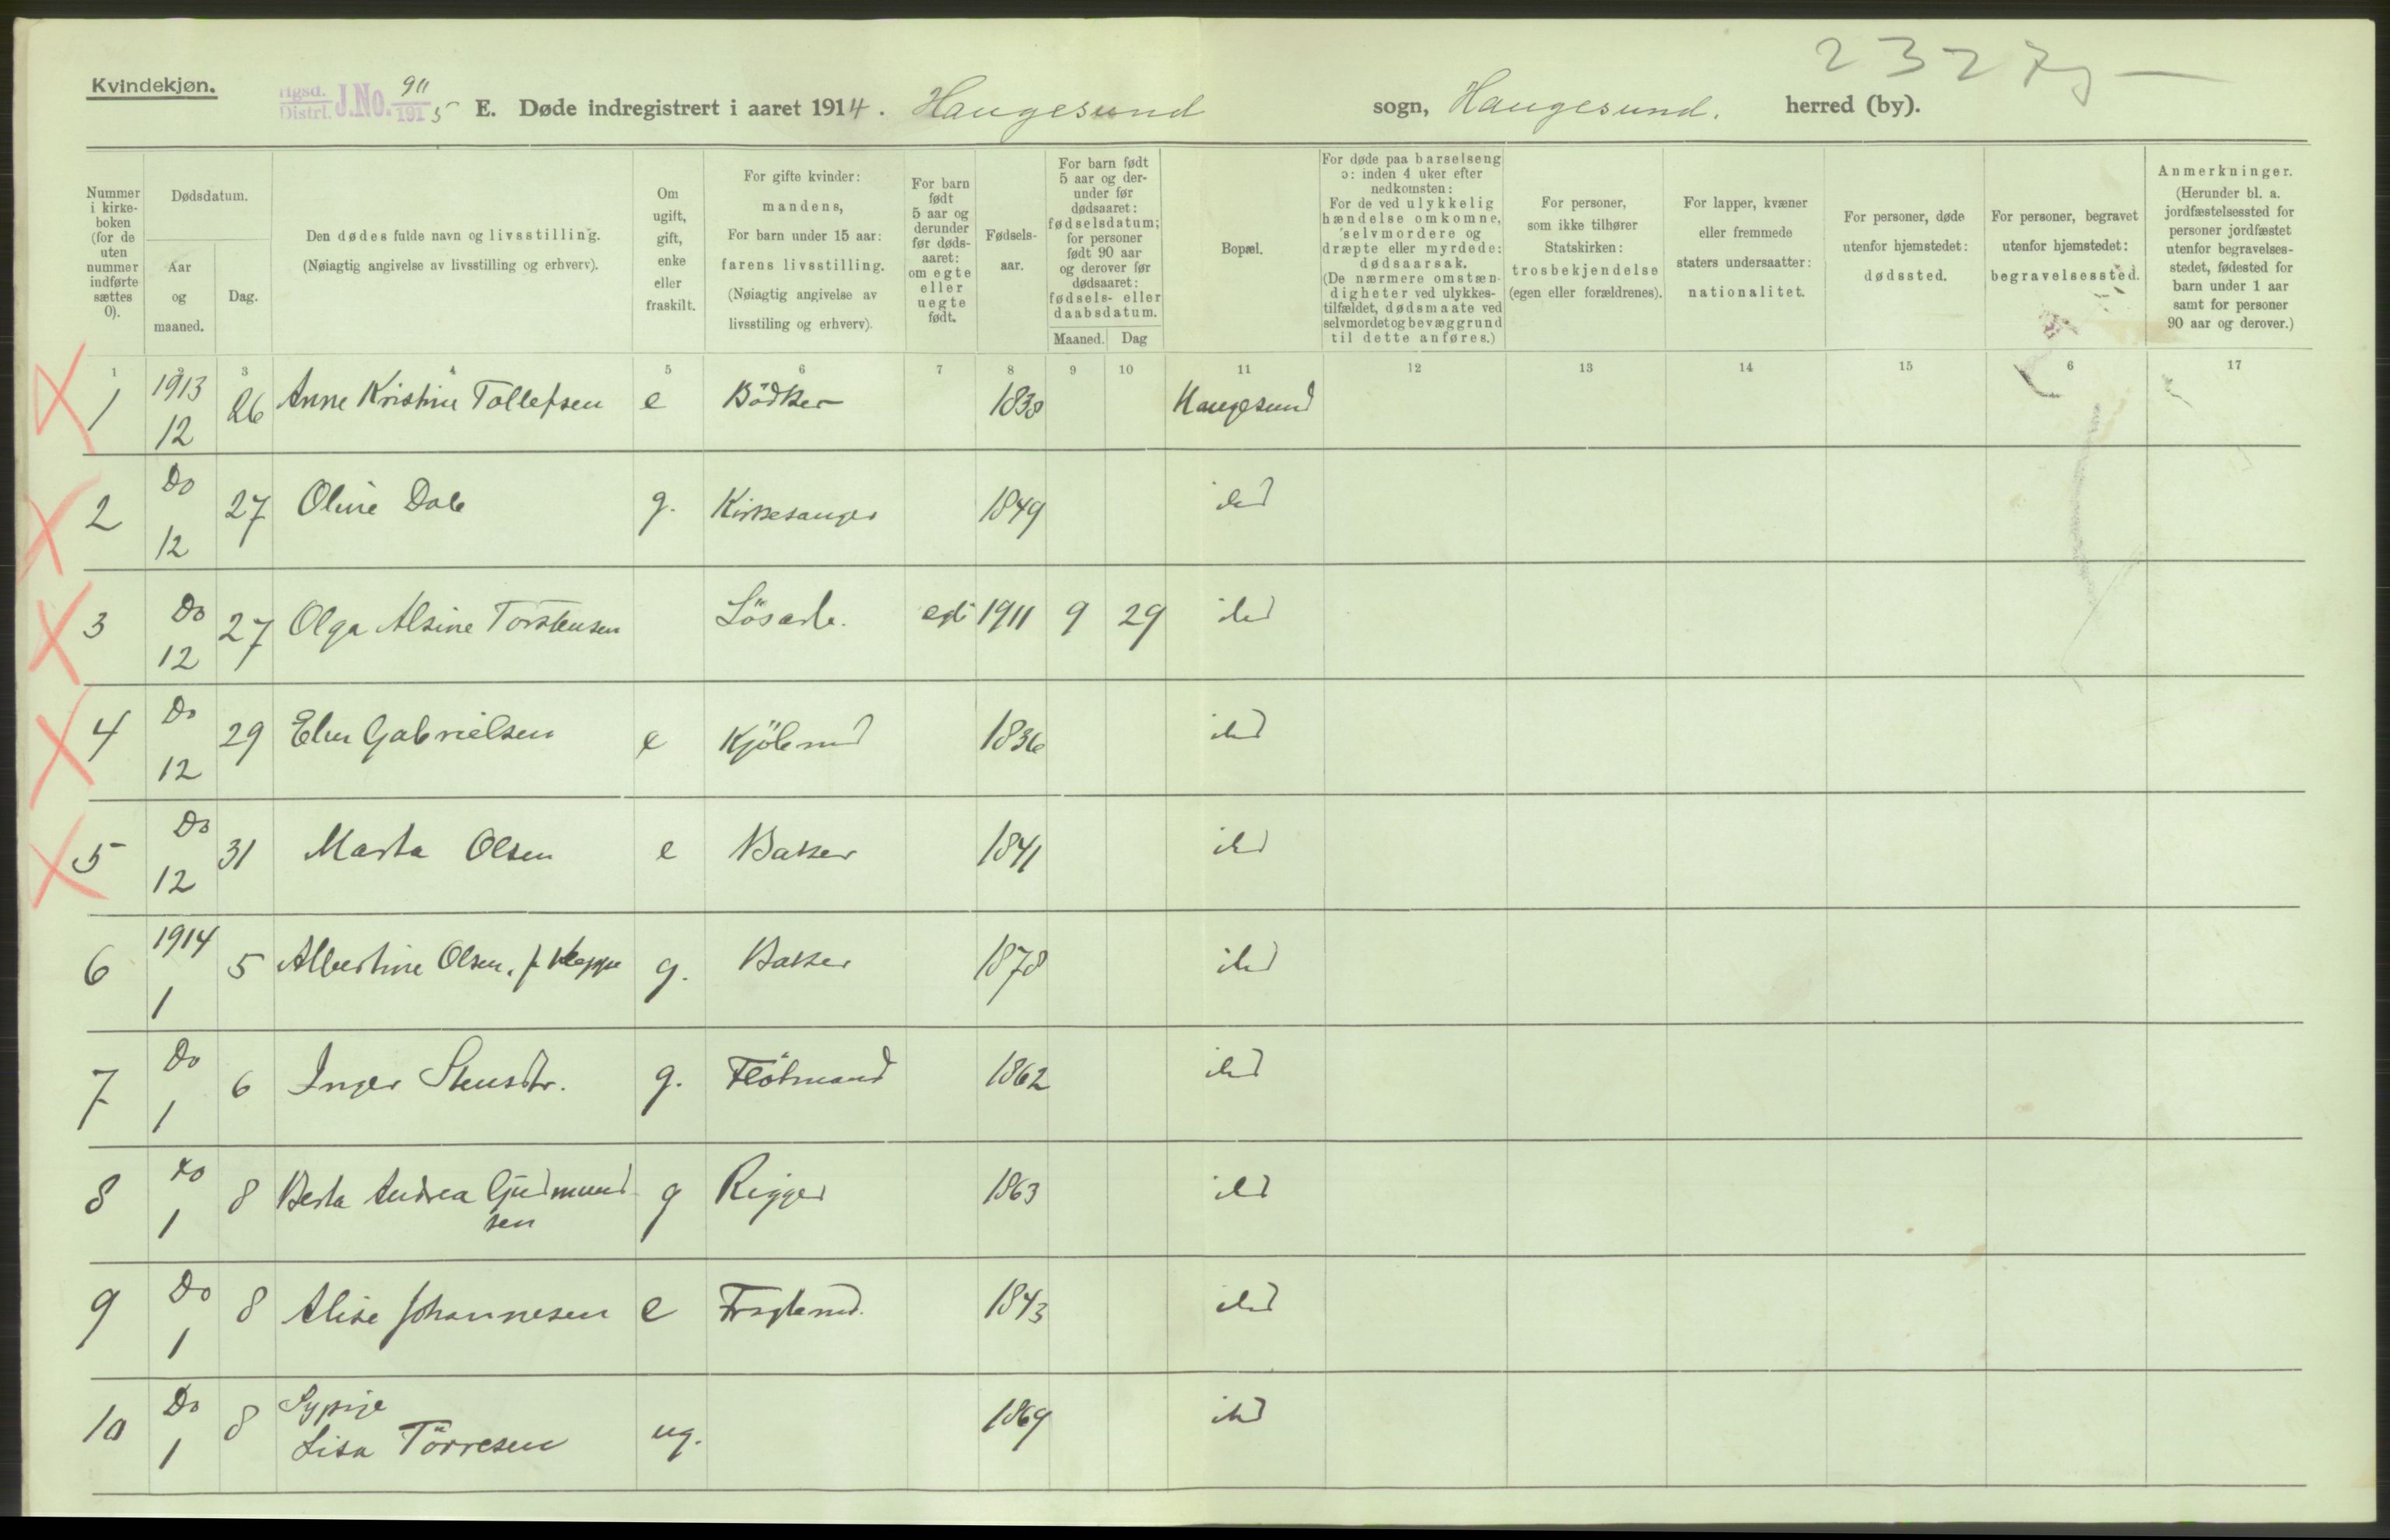 Kvindekjøn.
Hgsd. Distrl. J.No. 911 1915
E. Døde indregistrert i aaret 1914. Haugesund sogn, Haugesund. herred (by).
2327
Nummer i kirke-boken (for de uten nummer indførte sættes 0).
Dødsdatum.
Aar og maaned.
Dag.
Den dødes fulde navn og livsstilling.
(Nøiagtig angivelse av livsstilling og erhverv).
Om ugift, gift, enke eller fraskilt.
For gifte kvinder: mandens,
For barn under 15 aar: farens livsstilling.
(Nøiagtig angivelse av livsstiling og erhverv).
For barn født 5 aar og derunder før døds-aaret: om egte eller uegte født.
Fødsels-aar.
For barn født 5 aar og der-under før dødsaaret: fødselsdatum; for personer født 90 aar og derover før dødsaaret: fødsels- eller daabsdatum.
Maaned. Dag
Bopæl.
For døde paa barselseng ɔ: inden 4 uker efter nedkomsten: For de ved ulykkelig hændelse omkomne, selvmordere og dræpte eller myrdede: dødsaarsak. (De nærmere omstæn-digheter ved ulykkes-tilfældet, dødsmaate ved selvmordet og bevæggrund til dette anføres.)
For personer, som ikke tilhører Statskirken: trosbekjendelse (egen eller forældrenes).
For lapper, kvæner eller fremmede staters undersaatter: nationalitet.
For personer, døde utenfor hjemstedet: dødssted.
For personer, begravet utenfor hjemstedet: begravelsessted.
Anmerkninger.
(Herunder bl. a. jordfæstelsessted for personer jordfæstet utenfor begravelses-stedet, fødested for barn under 1 aar samt for personer 90 aar og derover.)
1 3 4 5 6 7 8 9 10 11 12 13 14 15 6 17
1 1913 12 26 Anne Kristine Tollefsen e Bödker 1838 Haugesund
2 Do 12 27 Oline Dale g. Kirkesanger 1849 ibd
3 Do 12 27 Olga Alsine Torstensen Lösarb. egte 1911 9 29 ibd
4 Do 12 29 Elen Gabrielsen e Kjöbmd 1836 ibd
5 Do 12 31 Marta Olsen e Baker 1841 ibd
6 1914 1 5 Albertine Olsen, f. Kleppe g. Baker 1878 ibd
7 Do 1 6 Inger g. Flötmand 1862 ibd
8 do 1 8 Berta Andrea Gudmund
sen g Rigger 1863 ibd
9 Do 1 8 Alise Johannesen e 1843 ibd
10 Do 1 8 Sypige
Lisa Törresen ug. 1869 ibd